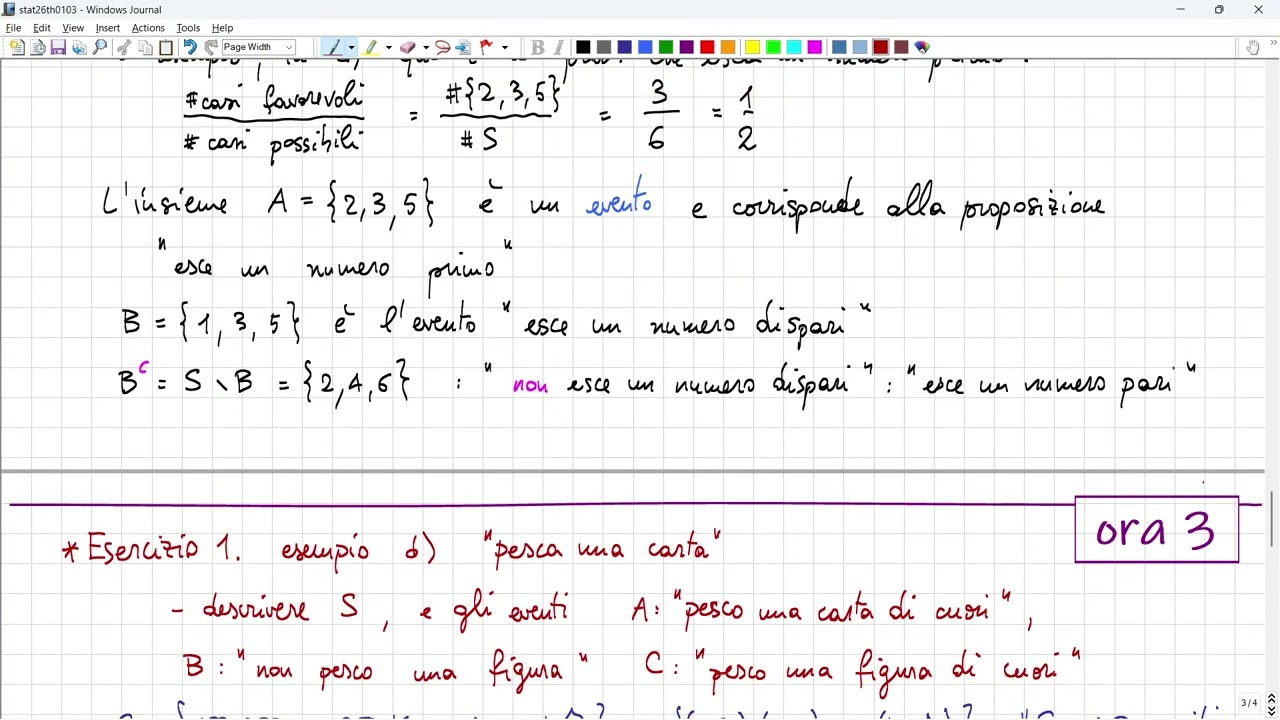 stat26th0103 - Windows Journal
File Edit View Insert Actions Tools Help
Page Width
#casi favorevoli / # casi possibili = #{2,3,5} / # S = 3/6 = 1/2
L'insieme A = {2,3,5} è un evento e corrisponde alla proposizione
"esce un numero primo"
B = {1,3,5} è l'evento "esce un numero dispari"
B^c = S \ B = {2,4,6} : "non esce un numero dispari" : "esce un numero pari"
ora 3
* Esercizio 1. esempio b) "pesca una carta"
- descrivere S, e gli eventi A: "pesco una carta di cuori",
B: "non pesco una figura" C: "pesco una figura di cuori"
3 / 4